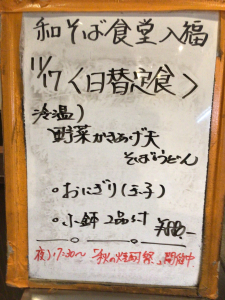 和そば食堂 入福
11/17 〈日替定食〉
冷温)
野菜かきあげ天
そばうどん
。おにぎり(玉子)
。小鉢2品付
夜)17:30〜「秋の焼酎祭」開催中